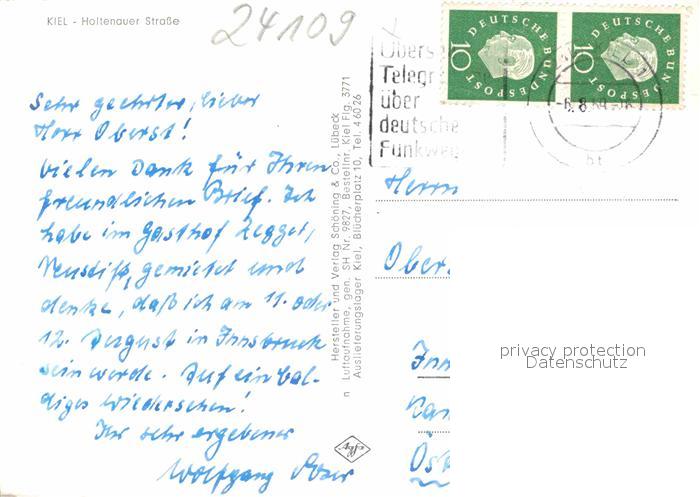 KIEL - Holtenauer Straße
24109
Sehr geehrter, lieber
Herr Oberst!
Vielen Dank für Ihren
freundlichen Brief. Ich
habe im Gasthof
Neustift, gemietet und
denke, daß ich am 11. oder
12. August in Innsbruck
sein werde. Auf ein bal-
diges Wiedersehen!
Ihr sehr ergebener
Wolfgang
Hersteller und Verlag Schöning & Co., Lübeck
Luftaufnahme, gen. SH Nr. 9827, Bestellnr. Kiel Flg. 3771
Auslieferungslager Kiel, Blücherplatz 10, Tel. 46026
n
DEUTSCHE BUNDESPOST
10
DEUTSCHE BUNDESPOST
10
Übers
Telegr
über
deutsche
Funkweg
-6.8
bt
Herrn
Ober
Inn
Öst
privacy protection
Datenschutz